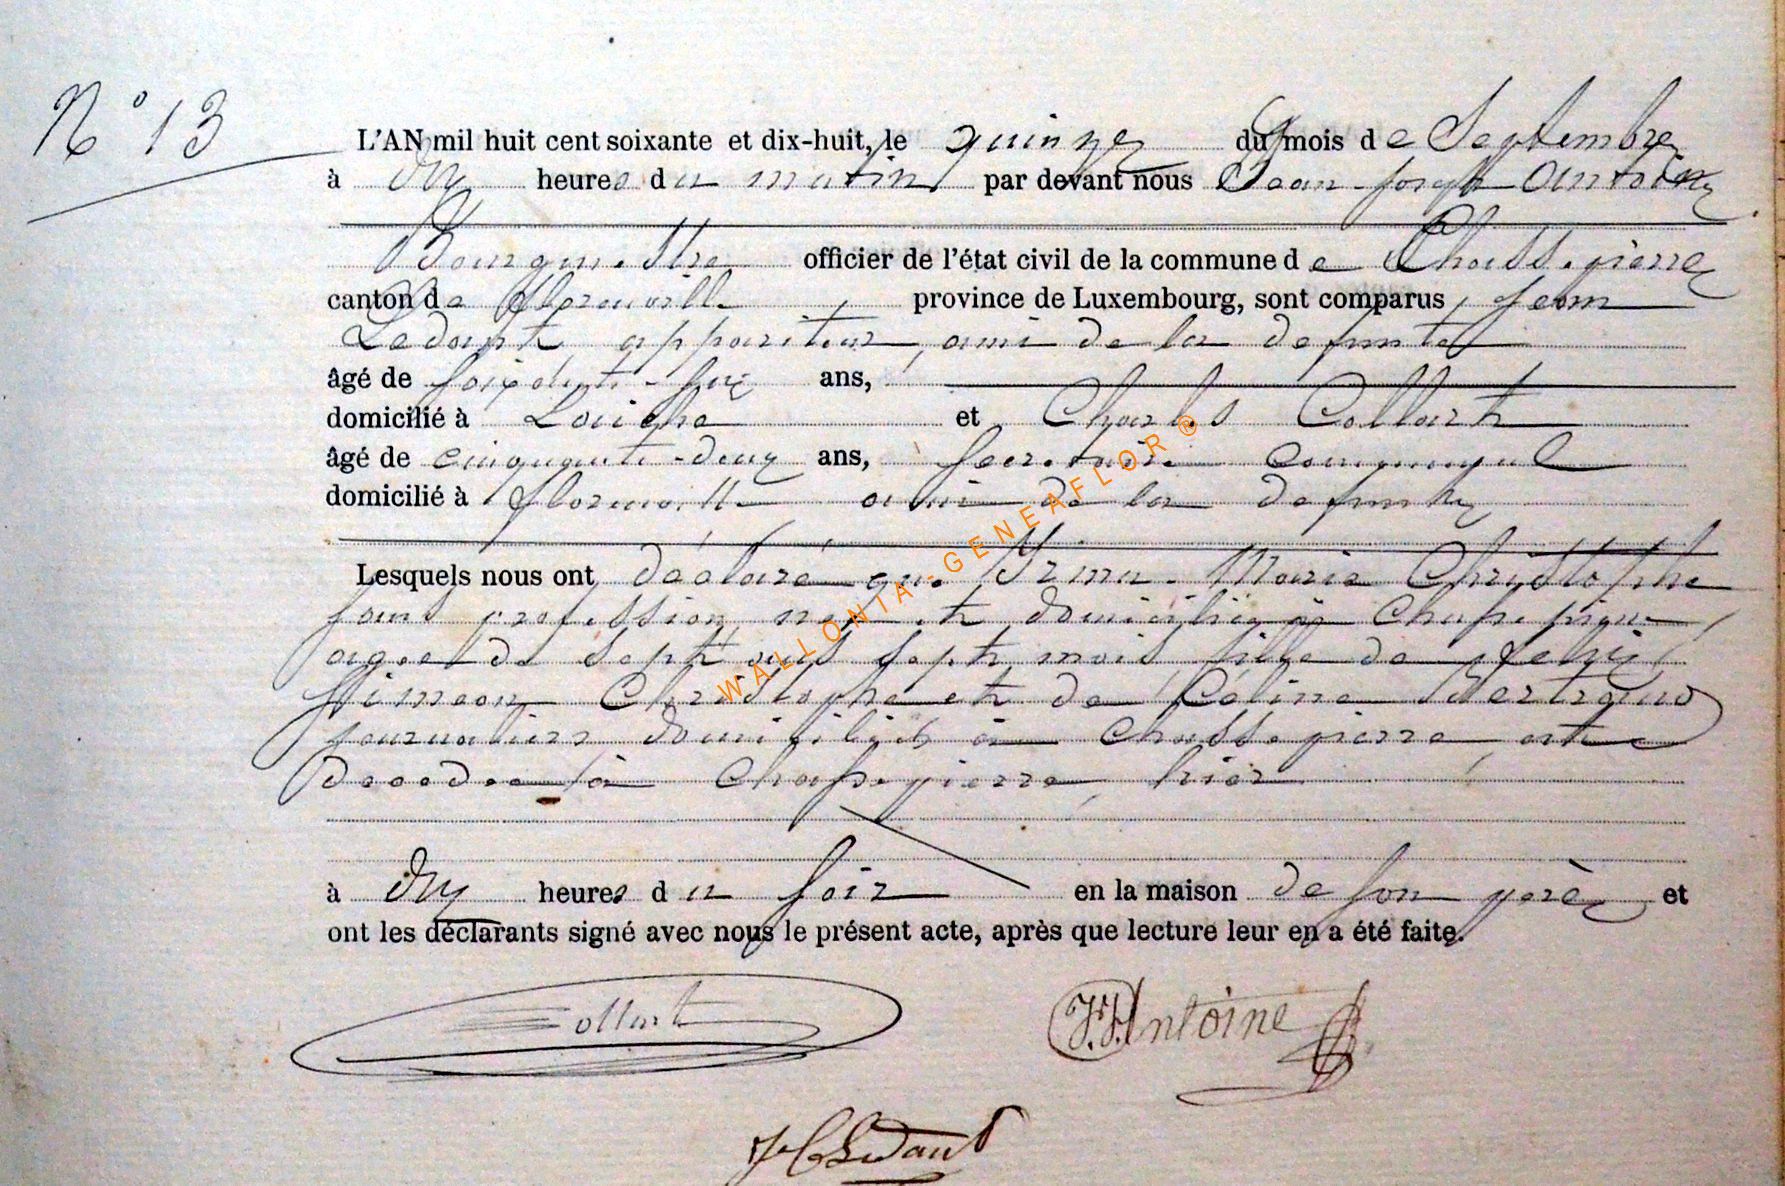 N° 13
L'AN mil huit cent soixante et dix-huit, le quinze du mois de Septembre
à dix heures du matin par devant nous Jean-Joseph Antoine
Bourgmestre officier de l'état civil de la commune de Chassepierre
canton de Florenville, province de Luxembourg, sont comparus, Jean
Ledant appariteur, ami de la defunte
âgé de soixante-six ans,
domicilié à Laiche et Charles Collart
âgé de cinquante-deux ans, secretaire communal
domicilié à Florenville ami de la defunte
Lesquels nous ont déclaré que Irma-Marie Christophe
sans profession, née et domiciliée à Chassepierre,
agée de sept ans sept mois fille de Felix
Simeon Christophe et de Céline Bertrand
journaliers domiciliés à Chassepierre, est
decedee à Chassepierre, hier
à dix heures du soir en la maison de son père et
ont les déclarants signé avec nous le présent acte, après que lecture leur en a été faite.
Collart
J.J. Antoine
Ledant
WALLONIA-GENEAFLOR ®